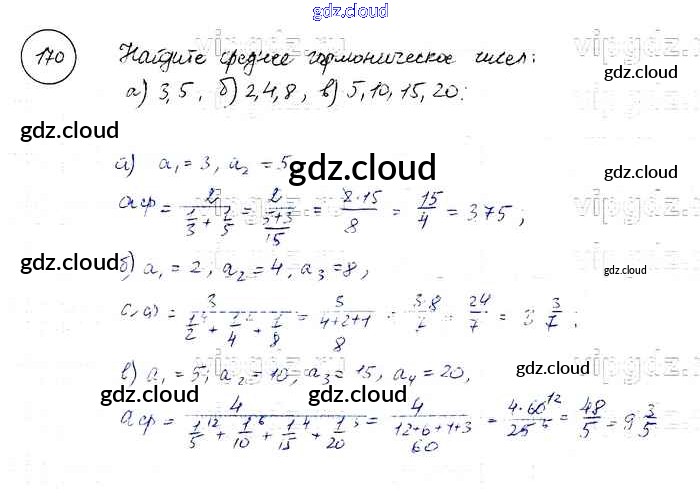 gdz.cloud
170 Найдите среднее гармоническое чисел:
а) 3,5, б) 2,4,8, в) 5,10,15,20:
gdz.cloud
gdz.cloud
а) a₁ = 3, a₂ = 5
gdz.cloud
aср = 2/(1/3 + 1/5) = 2/((5+3)/15) = 2·15/8 = 15/4 = 3,75;
gdz.cloud
gdz.cloud
б) a₁ = 2, a₂ = 4, a₃ = 8,
gdz.cloud
gdz.cloud
= 3/(1/2 + 1/4 + 1/8) = 3/((4+2+1)/8) = 3·8/7 = 24/7 = 3 3/7;
в) a₁ = 5, a₂ = 10, a₃ = 15, a₄ = 20,
gdz.cloud
gdz.cloud
gdz.cloud
aср = 4/(1/5 ¹² + 1/10 ⁶ + 1/15 ⁴ + 1/20 ³) = 4/((12+6+1+3)/60) = 4·60 ¹²/25 ⁵ = 48/5 = 9 3/5
gdz.cloud
gdz.cloud